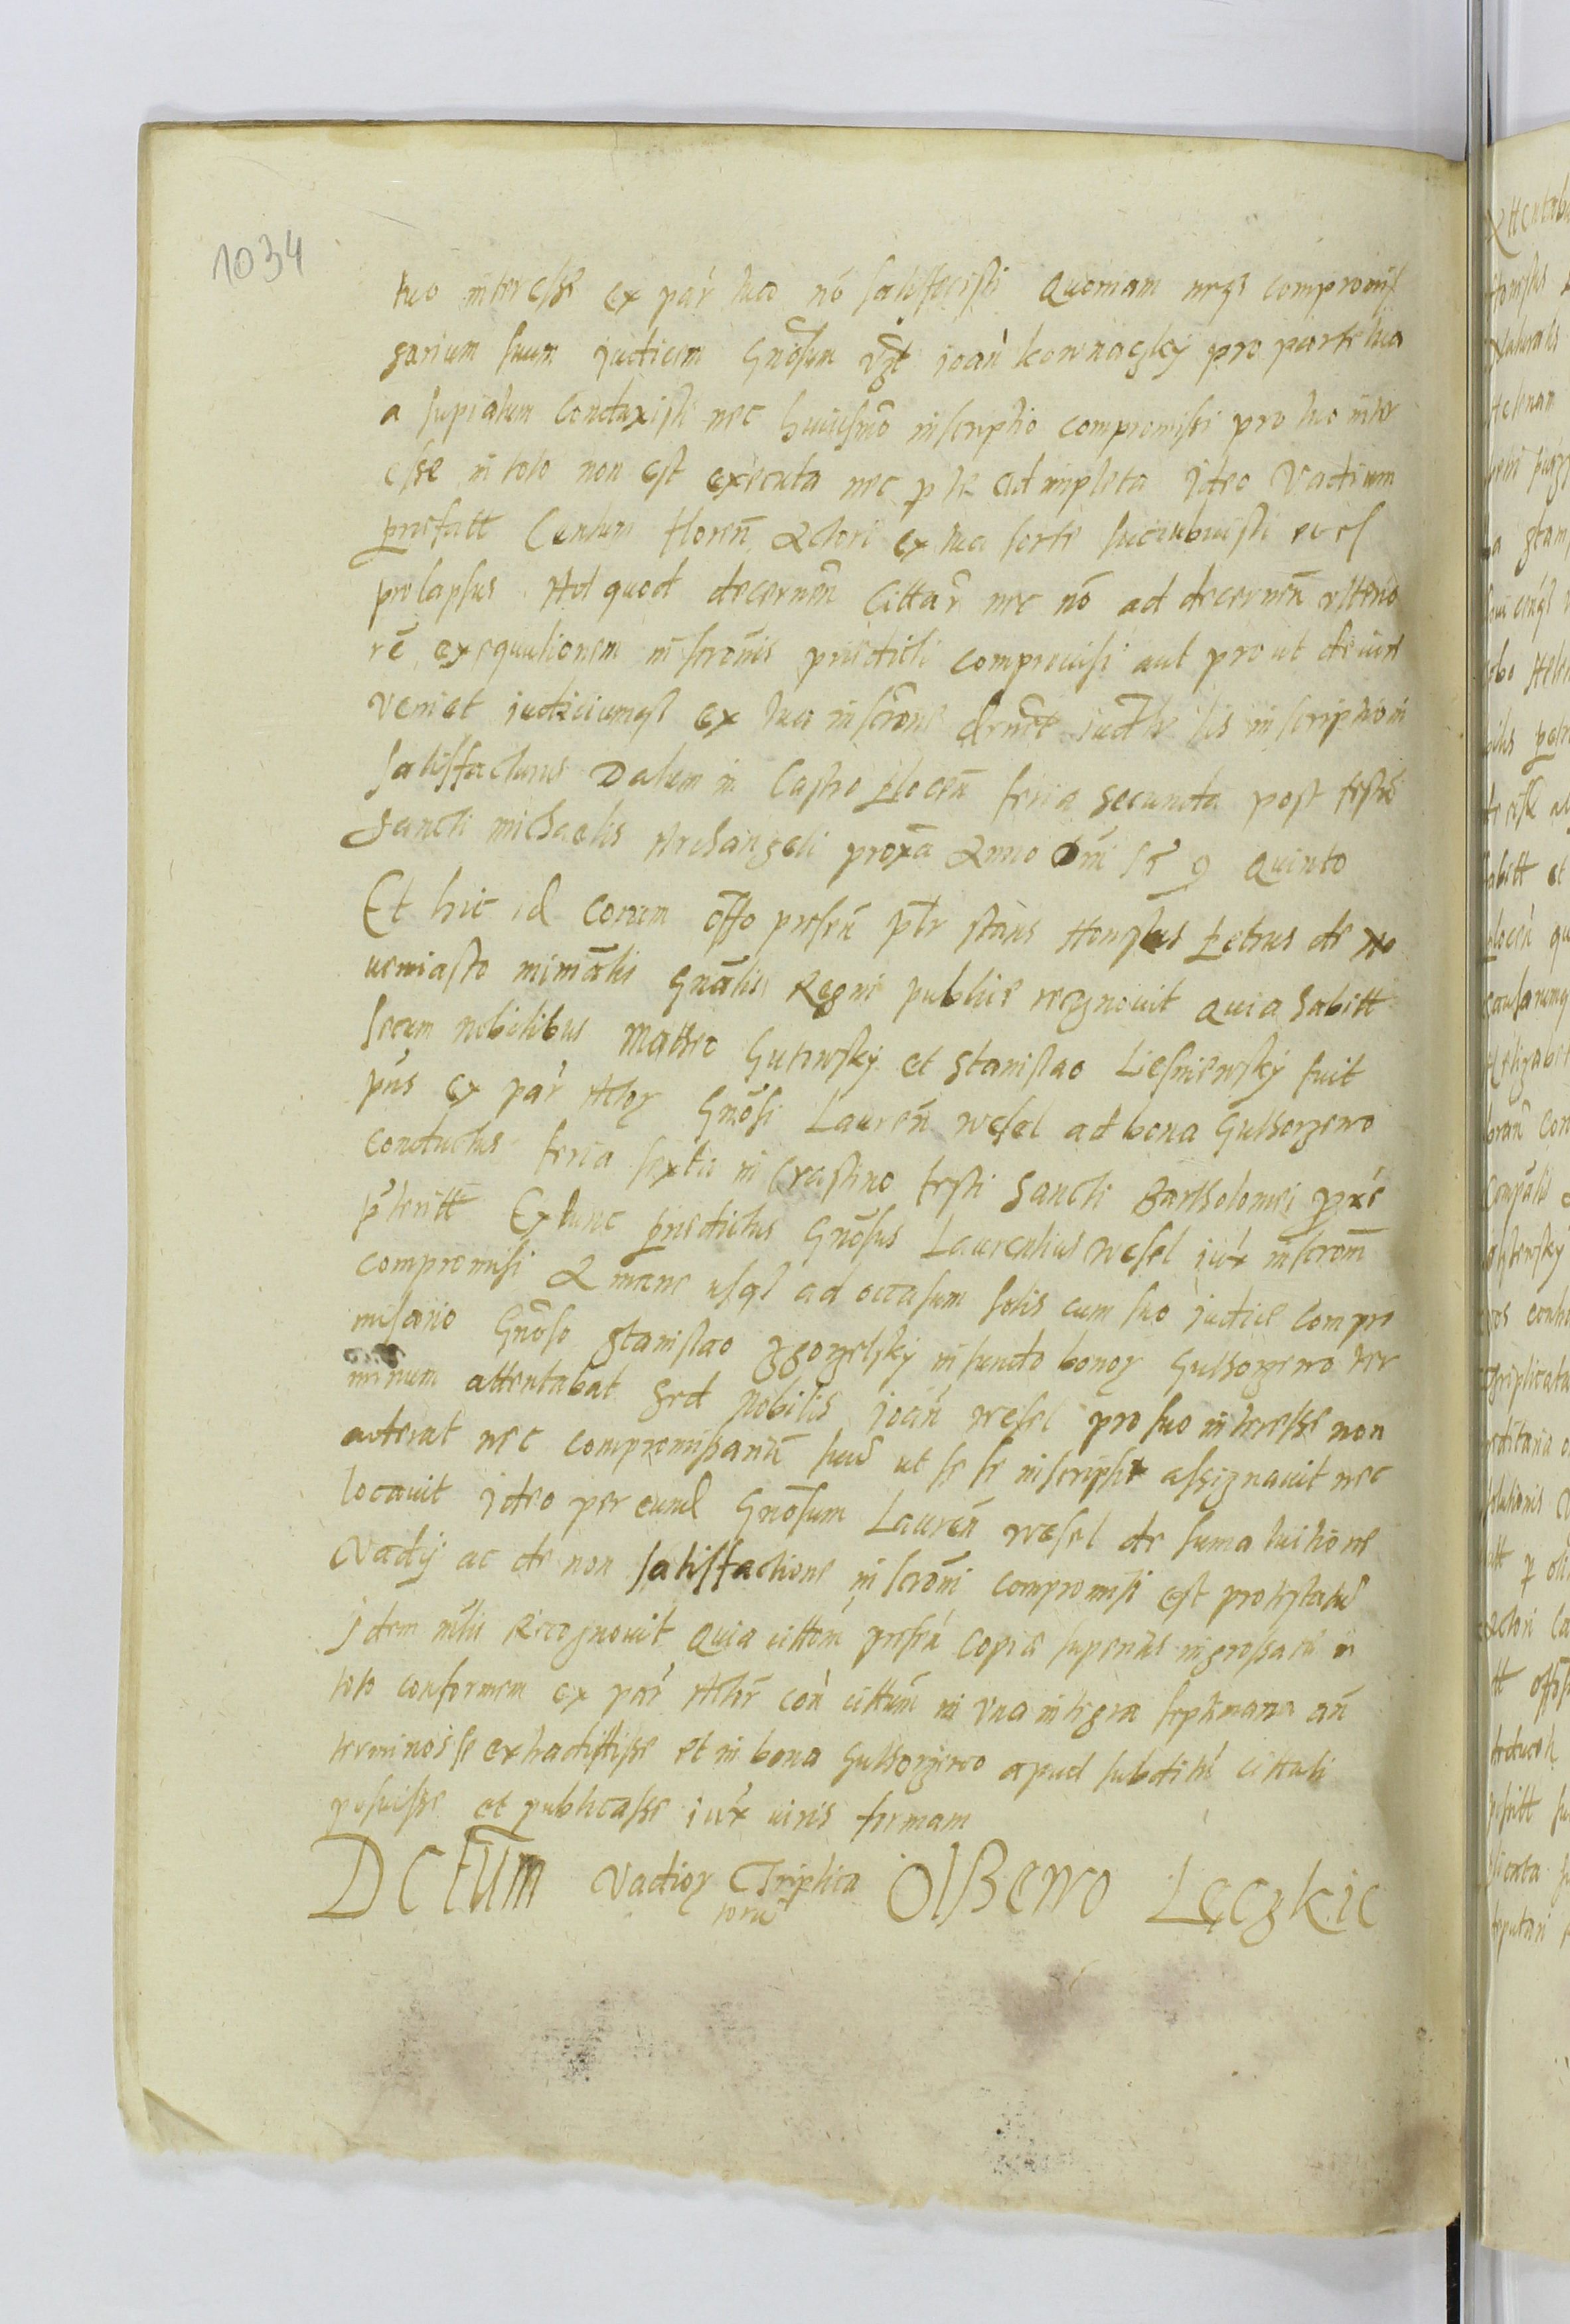 1034
tuo interesse ex par tua nō satisfecisti Quoniam neqz compromis
sarium suum judicem Gnōsum vzt joan kownaczky pro parte tua
a supiatum Conduxisti nec huiusmō inscriptio compromissi pro tuo inter
esse in toto non est executa nec p te adimpleta ideo Vadium
prefatt Centum floren Actori ex tua sorte succubuisti et es
prolapsus Ad quod decernen Cittar nec nō ad decernen vlterio
rē exequutionem inscrōnis predicti compromissi aut prout de iure
veniet judiciumqz ex tua inscrōne
satisfacturus Datum in Castro plocen feria secunda post festū
Sancti michaelis Archangeli proxa Anno Dni quinto
Et hic id coram offo presen pltr stans Honestus petrus de No
uemiasto ministerialis Gnālis Regni publice recognovit quia habitt
secum nobilibus Matheo Gutowsky et stanislao Liesniewsky fuit
pns ex par Actor Gnōsi Lauren wessel ad bona Gulhorzewo
conductus feria sexta in Crastino festi Sancti Bartholomei pxe
pteritt Extunc predictus Gnōsus Laurentius wessel iux inscrōm
compromissi A mane usqz ad occasum solis cum suo judice Compro
missario Gnōso stanislao zgorzelsky in fundo bonor Gulhorzewo ter
minum attentabat Sed Nobilis joan wessel pro suo interesse non
aderat nec compromissariū suū ut se se inscripsit assignavit nec
locavit ideo per eund Gnōsum Lauren wessel de suma luitione
Vadij ac de non satisfactione inscrōni compromissi est protestatū
jdem mlis Recognovit quia cittōm presen Copie superius ingrossate in
toto conformem ex par Actor cōn cittum in vna integra septimana an
terminos se extradidisse et in bona Gulhorzewo apud subditū cittati
posuisse et publicasse iux iuris formam
DCtum Vadior Triplica
torū Olszewo Łęczkie